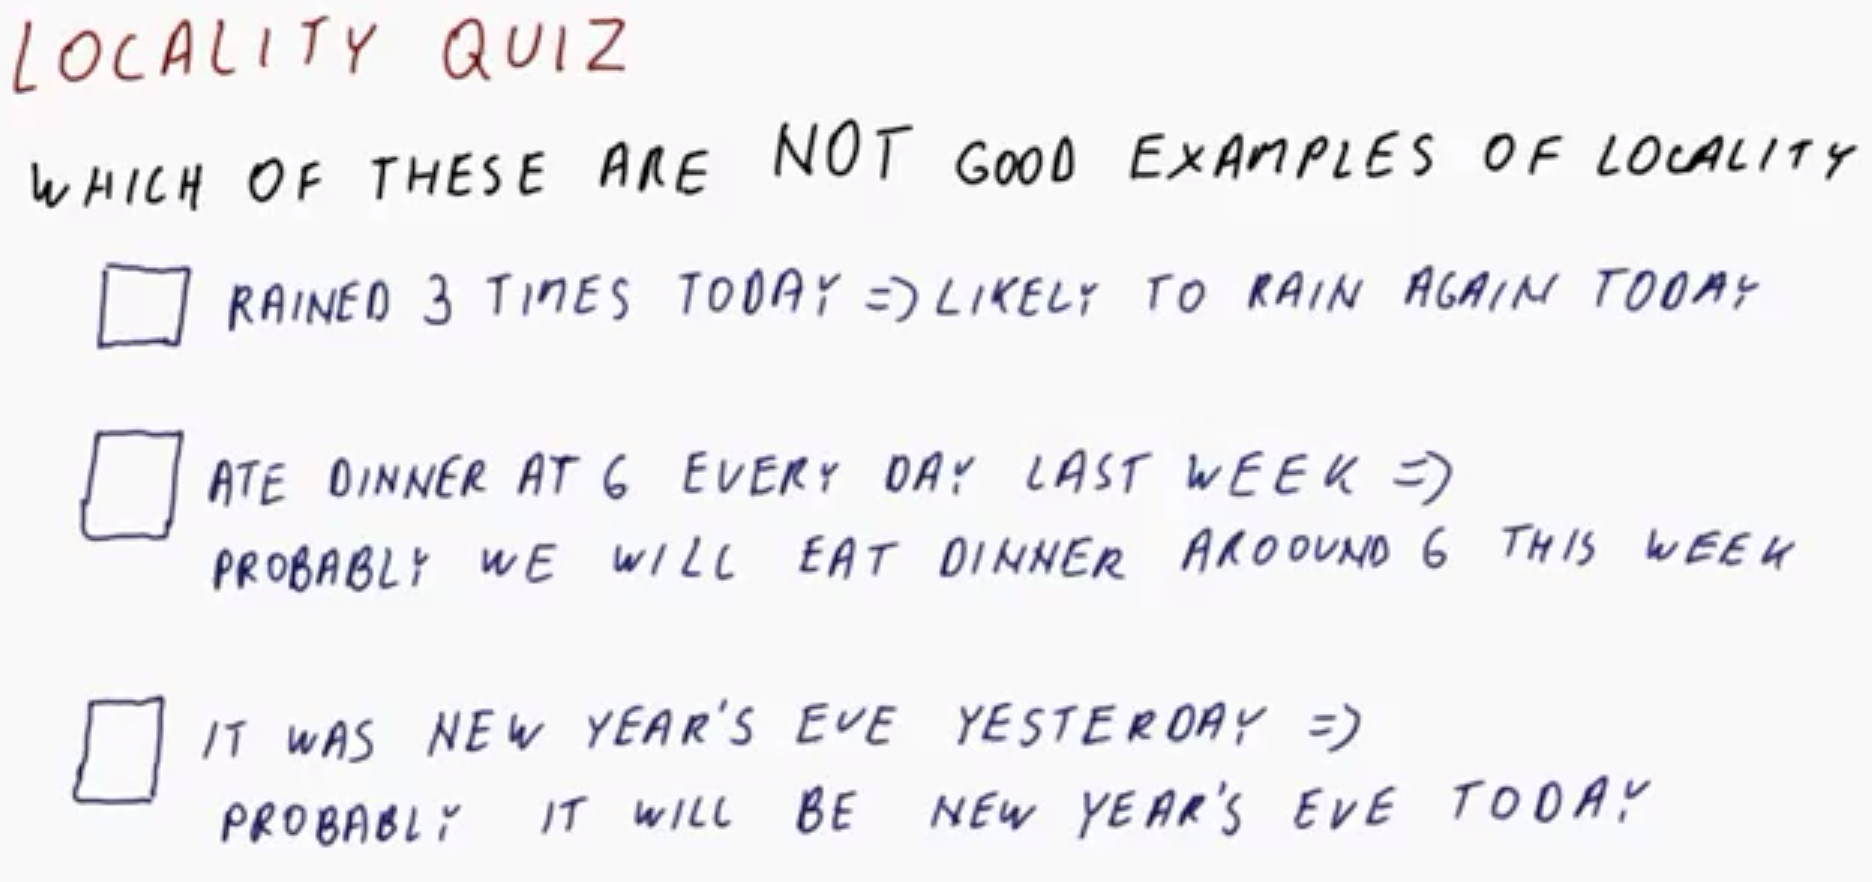 LOCALITY QUIZ
WHICH OF THESE ARE NOT GOOD EXAMPLES OF LOCALITY
RAINED 3 TIMES TODAY => LIKELY TO RAIN AGAIN TODAY
ATE DINNER AT 6 EVERY DAY LAST WEEK =>
PROBABLY WE WILL EAT DINNER AROOUND 6 THIS WEEK
IT WAS NEW YEAR'S EVE YESTERDAY =>
PROBABLY IT WILL BE NEW YEAR'S EVE TODAY